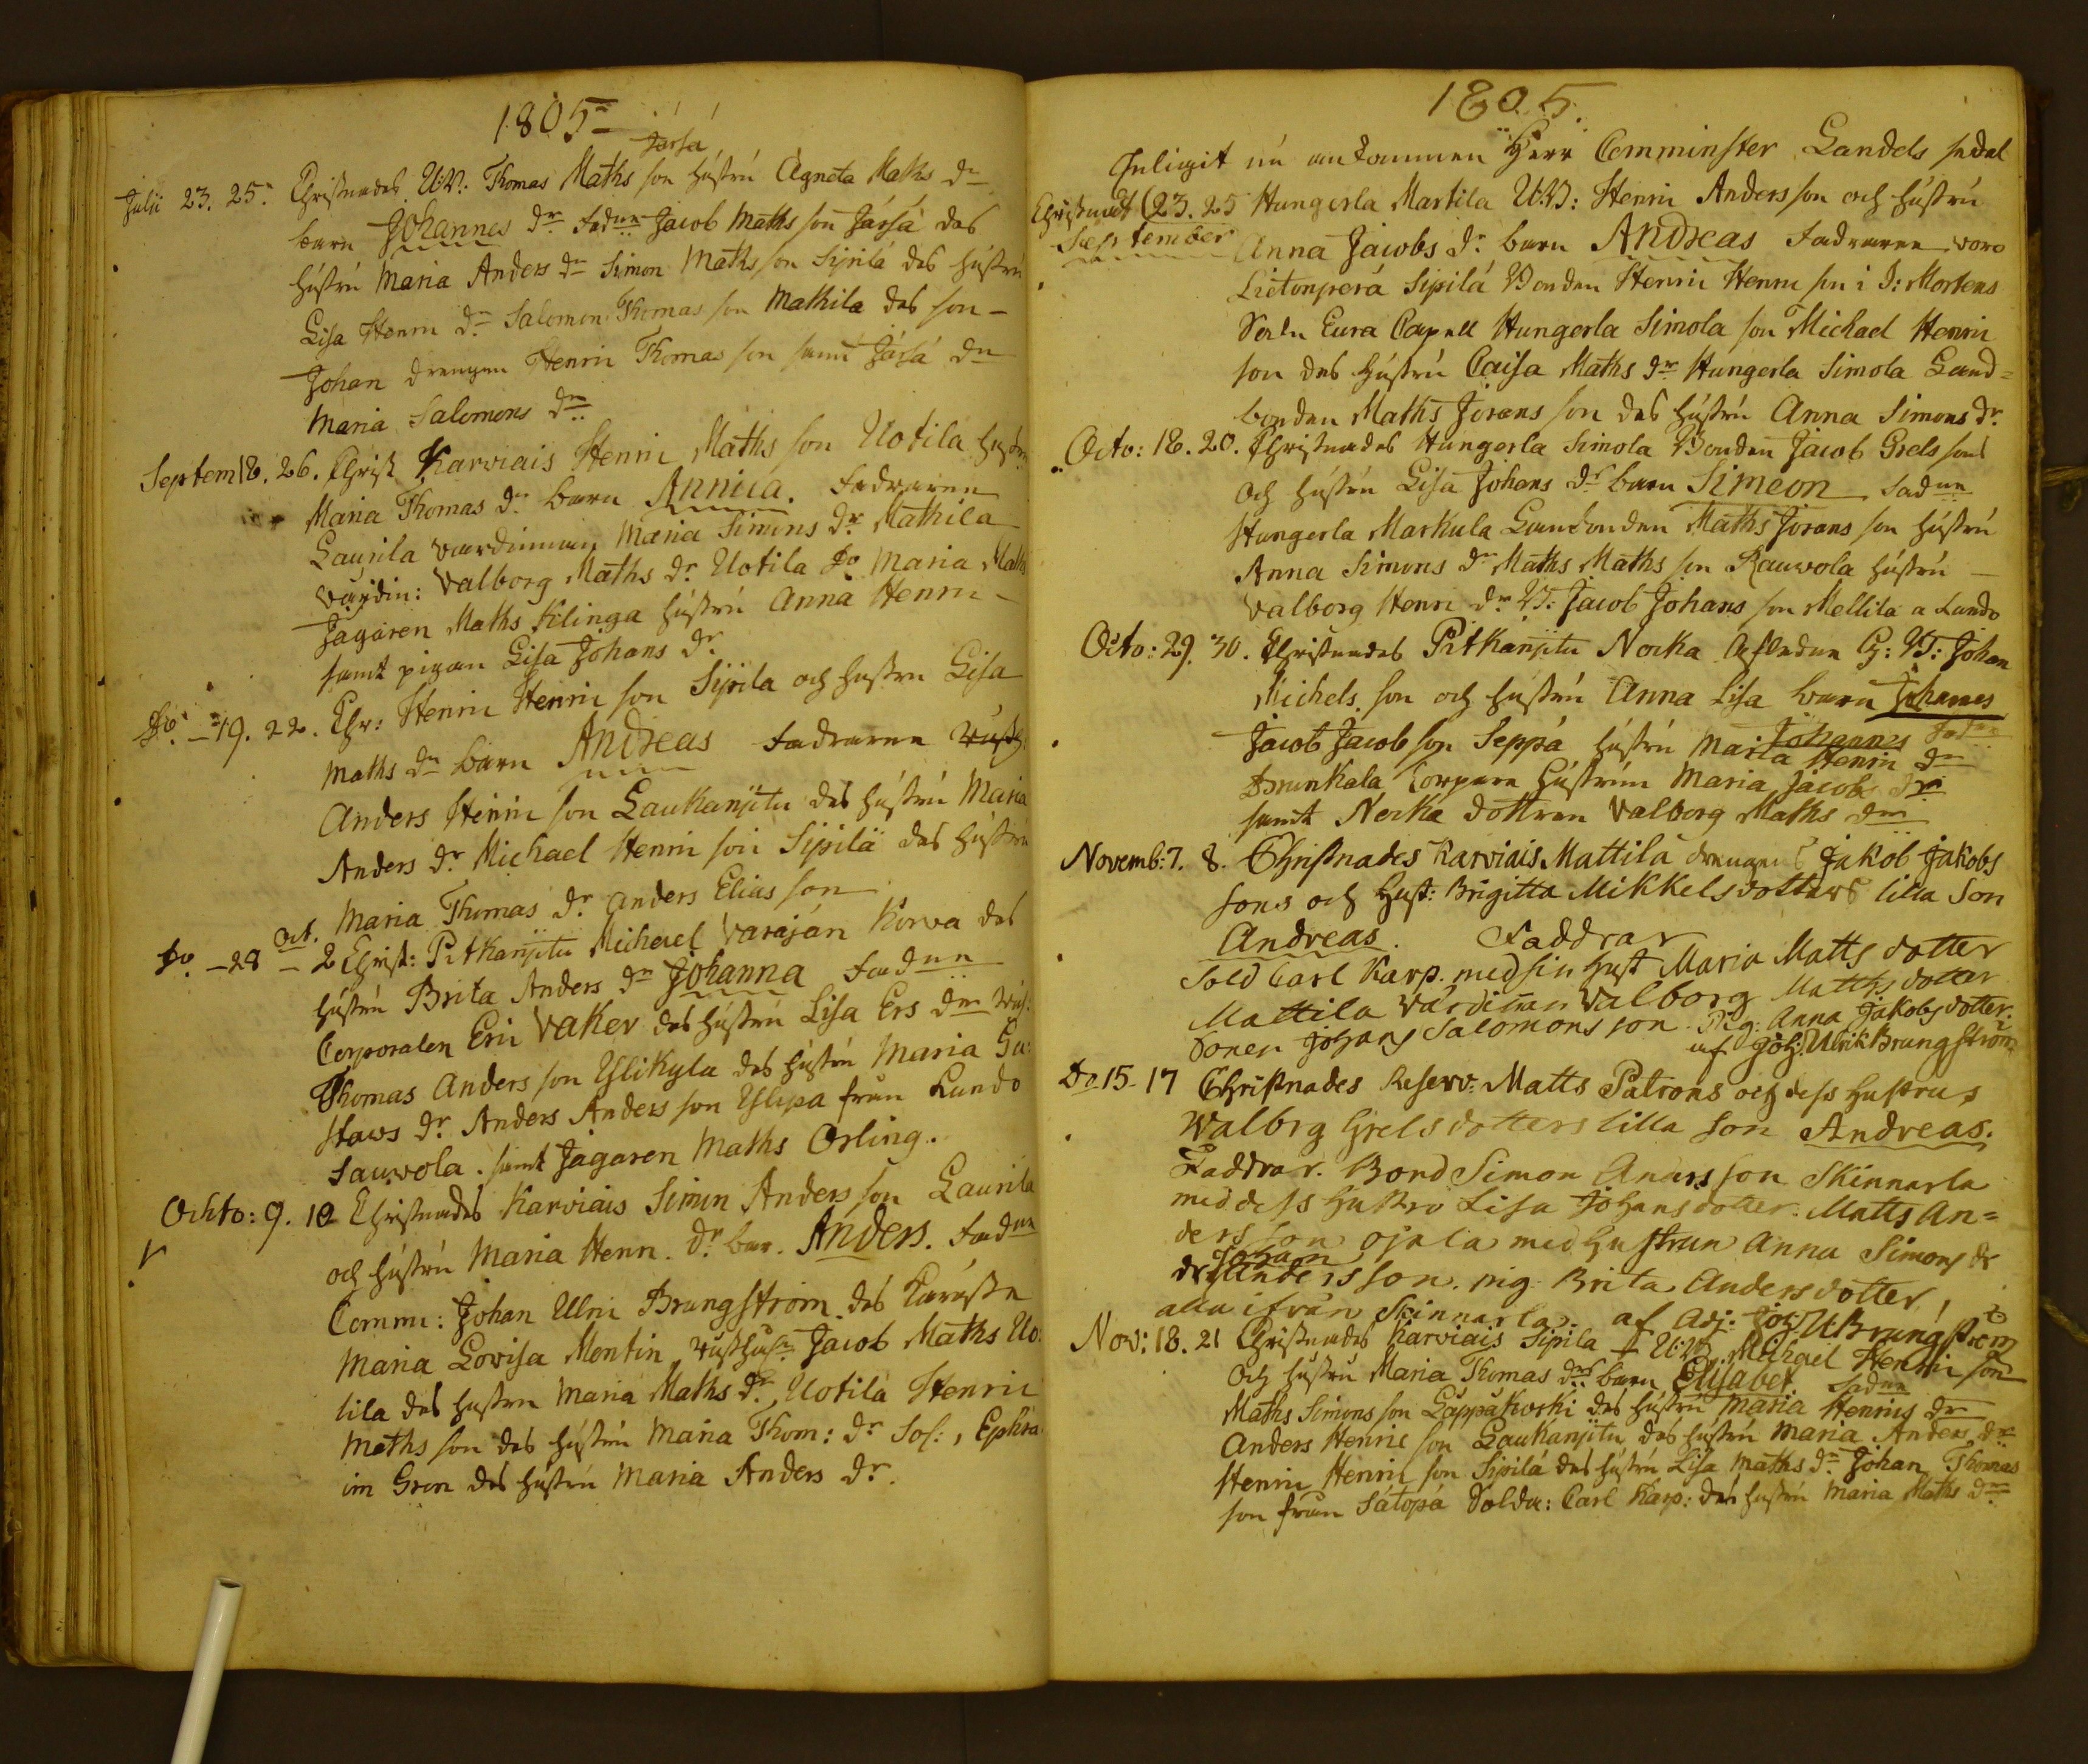 1805
Jarsä
Julii 23. 25. Christnades U:B: Thomas Maths son hustru Agneta Maths dr
barn Johannes dr fadne Jacob Maths son Järsä des
hústrú Maria Anders dr Simon Maths son Sipilä des hústrú
Lisa Henri dr Salomon Thomas son Mathila des son
Johan drengen Henric Thomas son samt Järsä dn
Maria Salomons dr
Septem 18. 26. Christ Karviais Henric Maths son Uotila hust
Maria Thomas dr barn Annica. Fadrarne
Laurila vardinnan Maria Simons dr Mathila
värdin: Valborg Maths dr Uotila Do Maria Maths
Jagaren Maths Kilinga hústrú Anna Henric
samt pigan Lisa Johans dr
Do - 19. 22. Chr: Henric Henric son Sipila och hustru Lisa
Maths dr barn Andreas Fadrarne
Anders Henric son Laukanpitu des hústrú Maria
Anders dr Michael Henric son Sipilä des hústrú
Maria Thomas dr Anders Elias son
Do - 28 - Oct. 2 Christ: Pitkanpitu Michael Varajän Korva des
hústrú Brita Anders dr Johanna fadne
Corporalen Eric Vaker des hústrú Lisa Ers dr
Thomas Anders son Ylikyla des hústrú Maria Gu
staws dr Anders Anders son Ylipa från Lundo
Sauvola. samt Jagaren Maths Orling.
Ochto: 9. 10 Christnades Karviais Simon Anders son Laurila
och hústrú Maria Henr. dr bar. Anders. fadne
Commi: Johan Ulric Brungström des Käraste
Maria Lovisa Montin Jacob Maths Uo
tila des hustru Maria Maths dr, Uotila Henric
Maths son des hústrú Maria Thom: dr Sol:, Ephra
im Gren des hústrú Maria Anders dr.
1805.
Enligit nú ankommen Herr Comminster Landels sedel
Christnadt (23. 25 Hungerla Martila U:B: Henric Anders son och hústrú
September Anna Jacobs dr barn Andreas Fadrarne voro
Lietonperä Sipilä Bonden Henric Henric son i S: Mortens
Sokn Eura Capell Hungerla Simola son Michael Henric
son des hústrú Caisa Maths dr Hungerla Simola Land=
bonden Maths Jorans son des hústrú Anna Simons dr
Octo: 18. 20. Christnades Hungerla Simola Bonden Jacob Grels sons
Och hústrú Lisa Johans dr barn Simeon fadne
Hungerla Markula Landbonden Maths Jorans son hústrú
Anna Simons dr Maths Maths son Rauvola hústrú
Valborg Henri dr B: Jacob Johans son Mellilä a Lundo
Octo: 29. 30. Christnades Pitkänpitu Nocka G: B: Johan
Michels son och hustrú Anna Lisa barn Johannes
Johannes fadne
Jacob Jacob son Seppä hústrú Maria Henric dr
Brunkala hústrún Maria Jacobs dr
samt Nocka dottren Valborg Maths dr
Novemb: 7. 8. Christnades Karviais Mattila drengens Jakob Jakobs
sons och Hust: Brigitta Mikkelsdotters lilla Son
Andreas. Faddrar
Sold Carl Karp. med sin hust Maria Matts dotter
Mattila Värdinan Valborg Matths dotter
Sonen Johans Salomons son. Pig: Anna Jakobsdotter.
af Joh: Ulrik Brungström
Do 15 - 17 Christnades Reserv: Matts Patrons och dess hustrus
Walbrg Grelsdotters lilla Son Andreas.
Faddrar. Bond Simon Anders son Skinnarla
med dess Hustru Lisa Johansdotter. Matts An=
ders son ojala med hustrun Anna Simons dr
dr Johan Anders son. pig. Brita Andersdotter,
alla ifrån Skinnarla. af Adj: Joh: U Brungström
Nov: 18. 21 Christnades Karviais Sipila U:B Michael Henric son
Och hustru Maria Thomas dr barn Elisabet fadne
Maths Simons son Lappäkoski des hústrú Maria Henrics dr
Anders Henric son Laukanpitu des hustrú Maria Anders dr
Henric Henric son Sipilä des hústrú Lisa Maths dr Johan Thomas
son från Sätopä Solda: Carl Karp: des hustru Maria Maths dr